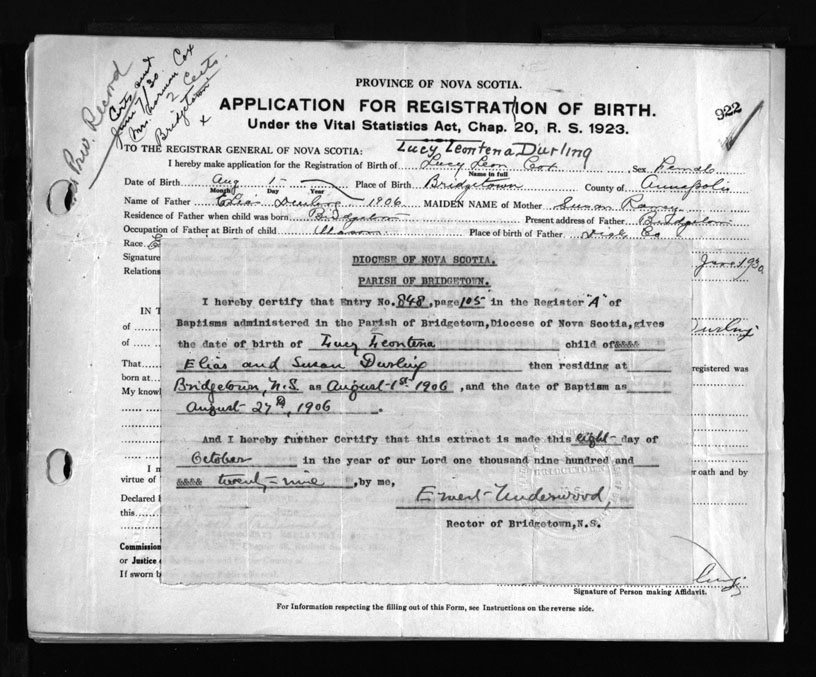 No Prev. Record
Certs sent
June 7/30
Mrs. Norman Cox
2 Certs
Bridgetown
X
922
PROVINCE OF NOVA SCOTIA.
APPLICATION FOR REGISTRATION OF BIRTH.
Under the Vital Statistics Act, Chap. 20, R. S. 1923.
TO THE REGISTRAR GENERAL OF NOVA SCOTIA: Lucy Leontena Durling
I hereby make application for the Registration of Birth of Lucy Leon Cox Sex Female
Name in full
Date of Birth Aug 1 Place of Birth Bridgetown County of Annapolis
Month Day Year
Name of Father Elias Durling 1906 MAIDEN NAME of Mother Susan
Residence of Father when child was born Bridgetown Present address of Father Bridgetown
Occupation of Father at Birth of child Mason Place of birth of Father
Race.
Signature June 1930
Relations
DIOCESE OF NOVA SCOTIA.
PARISH OF BRIDGETOWN.
I hereby Certify that Entry No. 848, page 105 in the Register "A" of
Baptisms administered in the Parish of Bridgetown, Diocese of Nova Scotia, gives
the date of birth of Lucy Leontena child of &&&&
Elias and Susan Durling then residing at
Bridgetown, N.S. as August 1st 1906, and the date of Baptism as
August 27th, 1906.
And I hereby further Certify that this extract is made this eight day of
October in the year of our Lord one thousand nine hundred and
&&&& twenty-nine, by me,
Ernest Underwood,
Rector of Bridgetown, N.S.
IN T
of Durling
of
That registered was
born at
My knowl
I m er oath and by
virtue of
Declared b
this
Commission
or Justice o
If sworn b
Signature of Person making Affidavit.
For Information respecting the filling out of this Form, see Instructions on the reverse side.